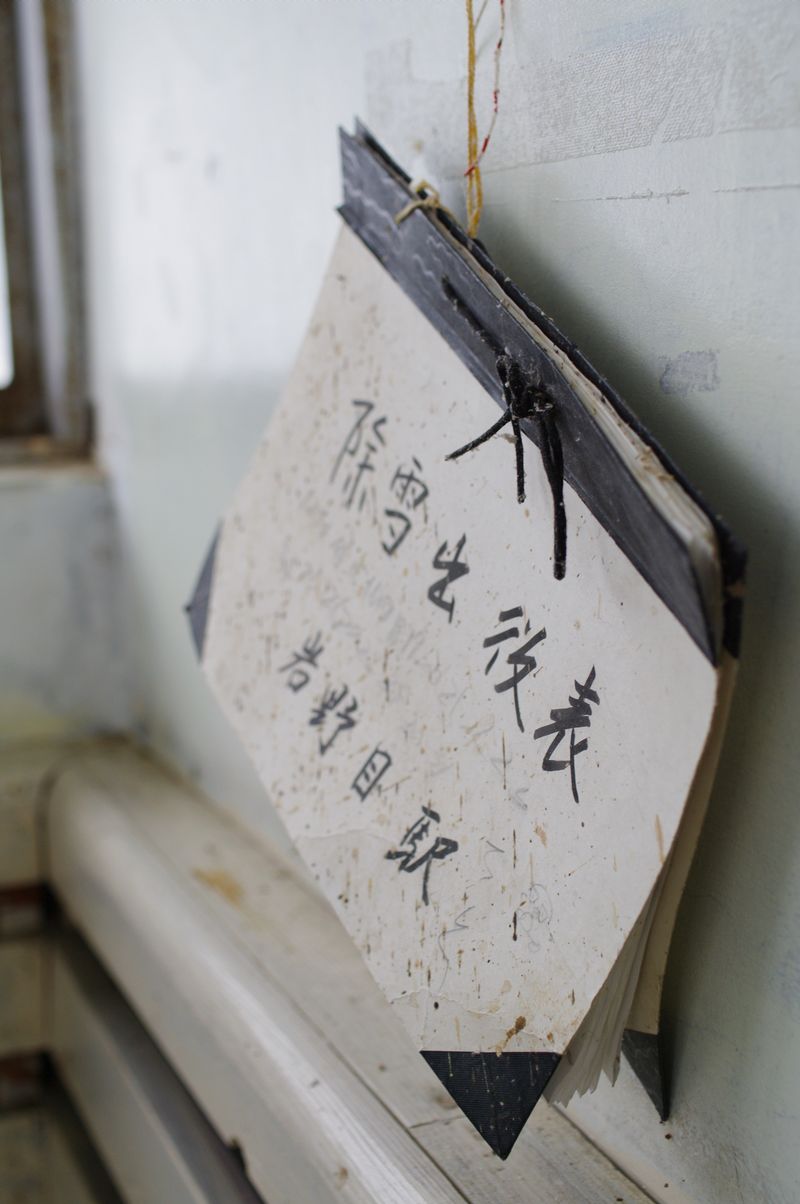 除雪出役表
岩野目駅